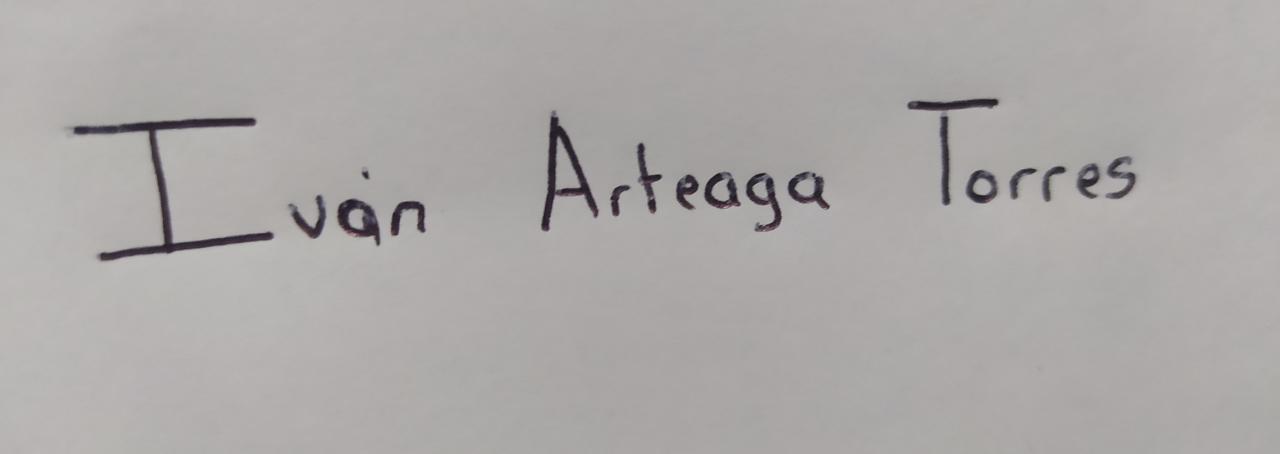 Iván Arteaga Torres